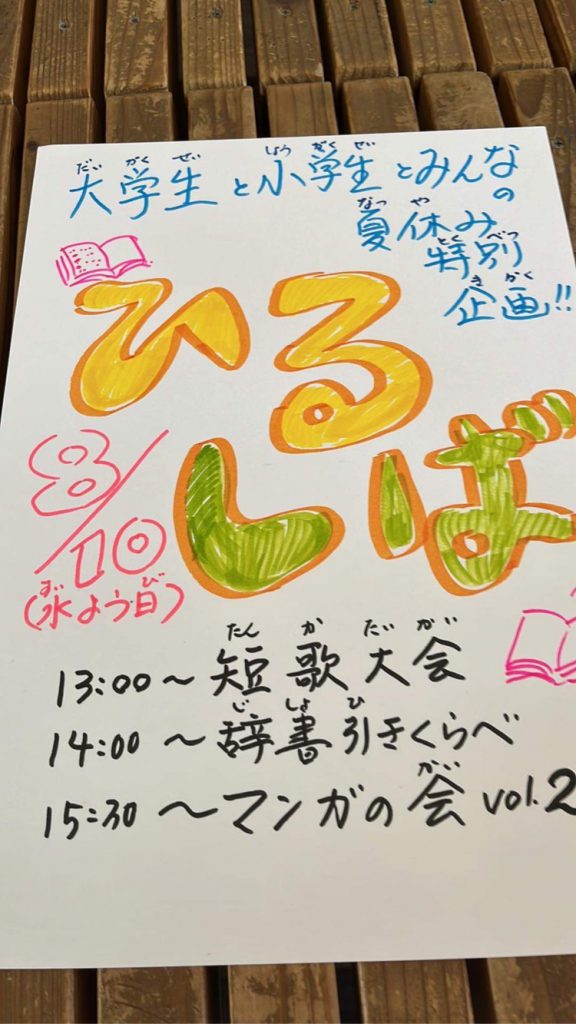 大学生と小学生とみんなの
だいがくせい しょうがくせい
夏休み
なつや
特別
とくべつ
企画!!
きかく
ひる
しば
8/10
(水よう日)
すい び
13:00〜短歌大会
たんかたいかい
14:00〜辞書引きくらべ
じしょひ
15:30〜マンガの会 vol.2
かい